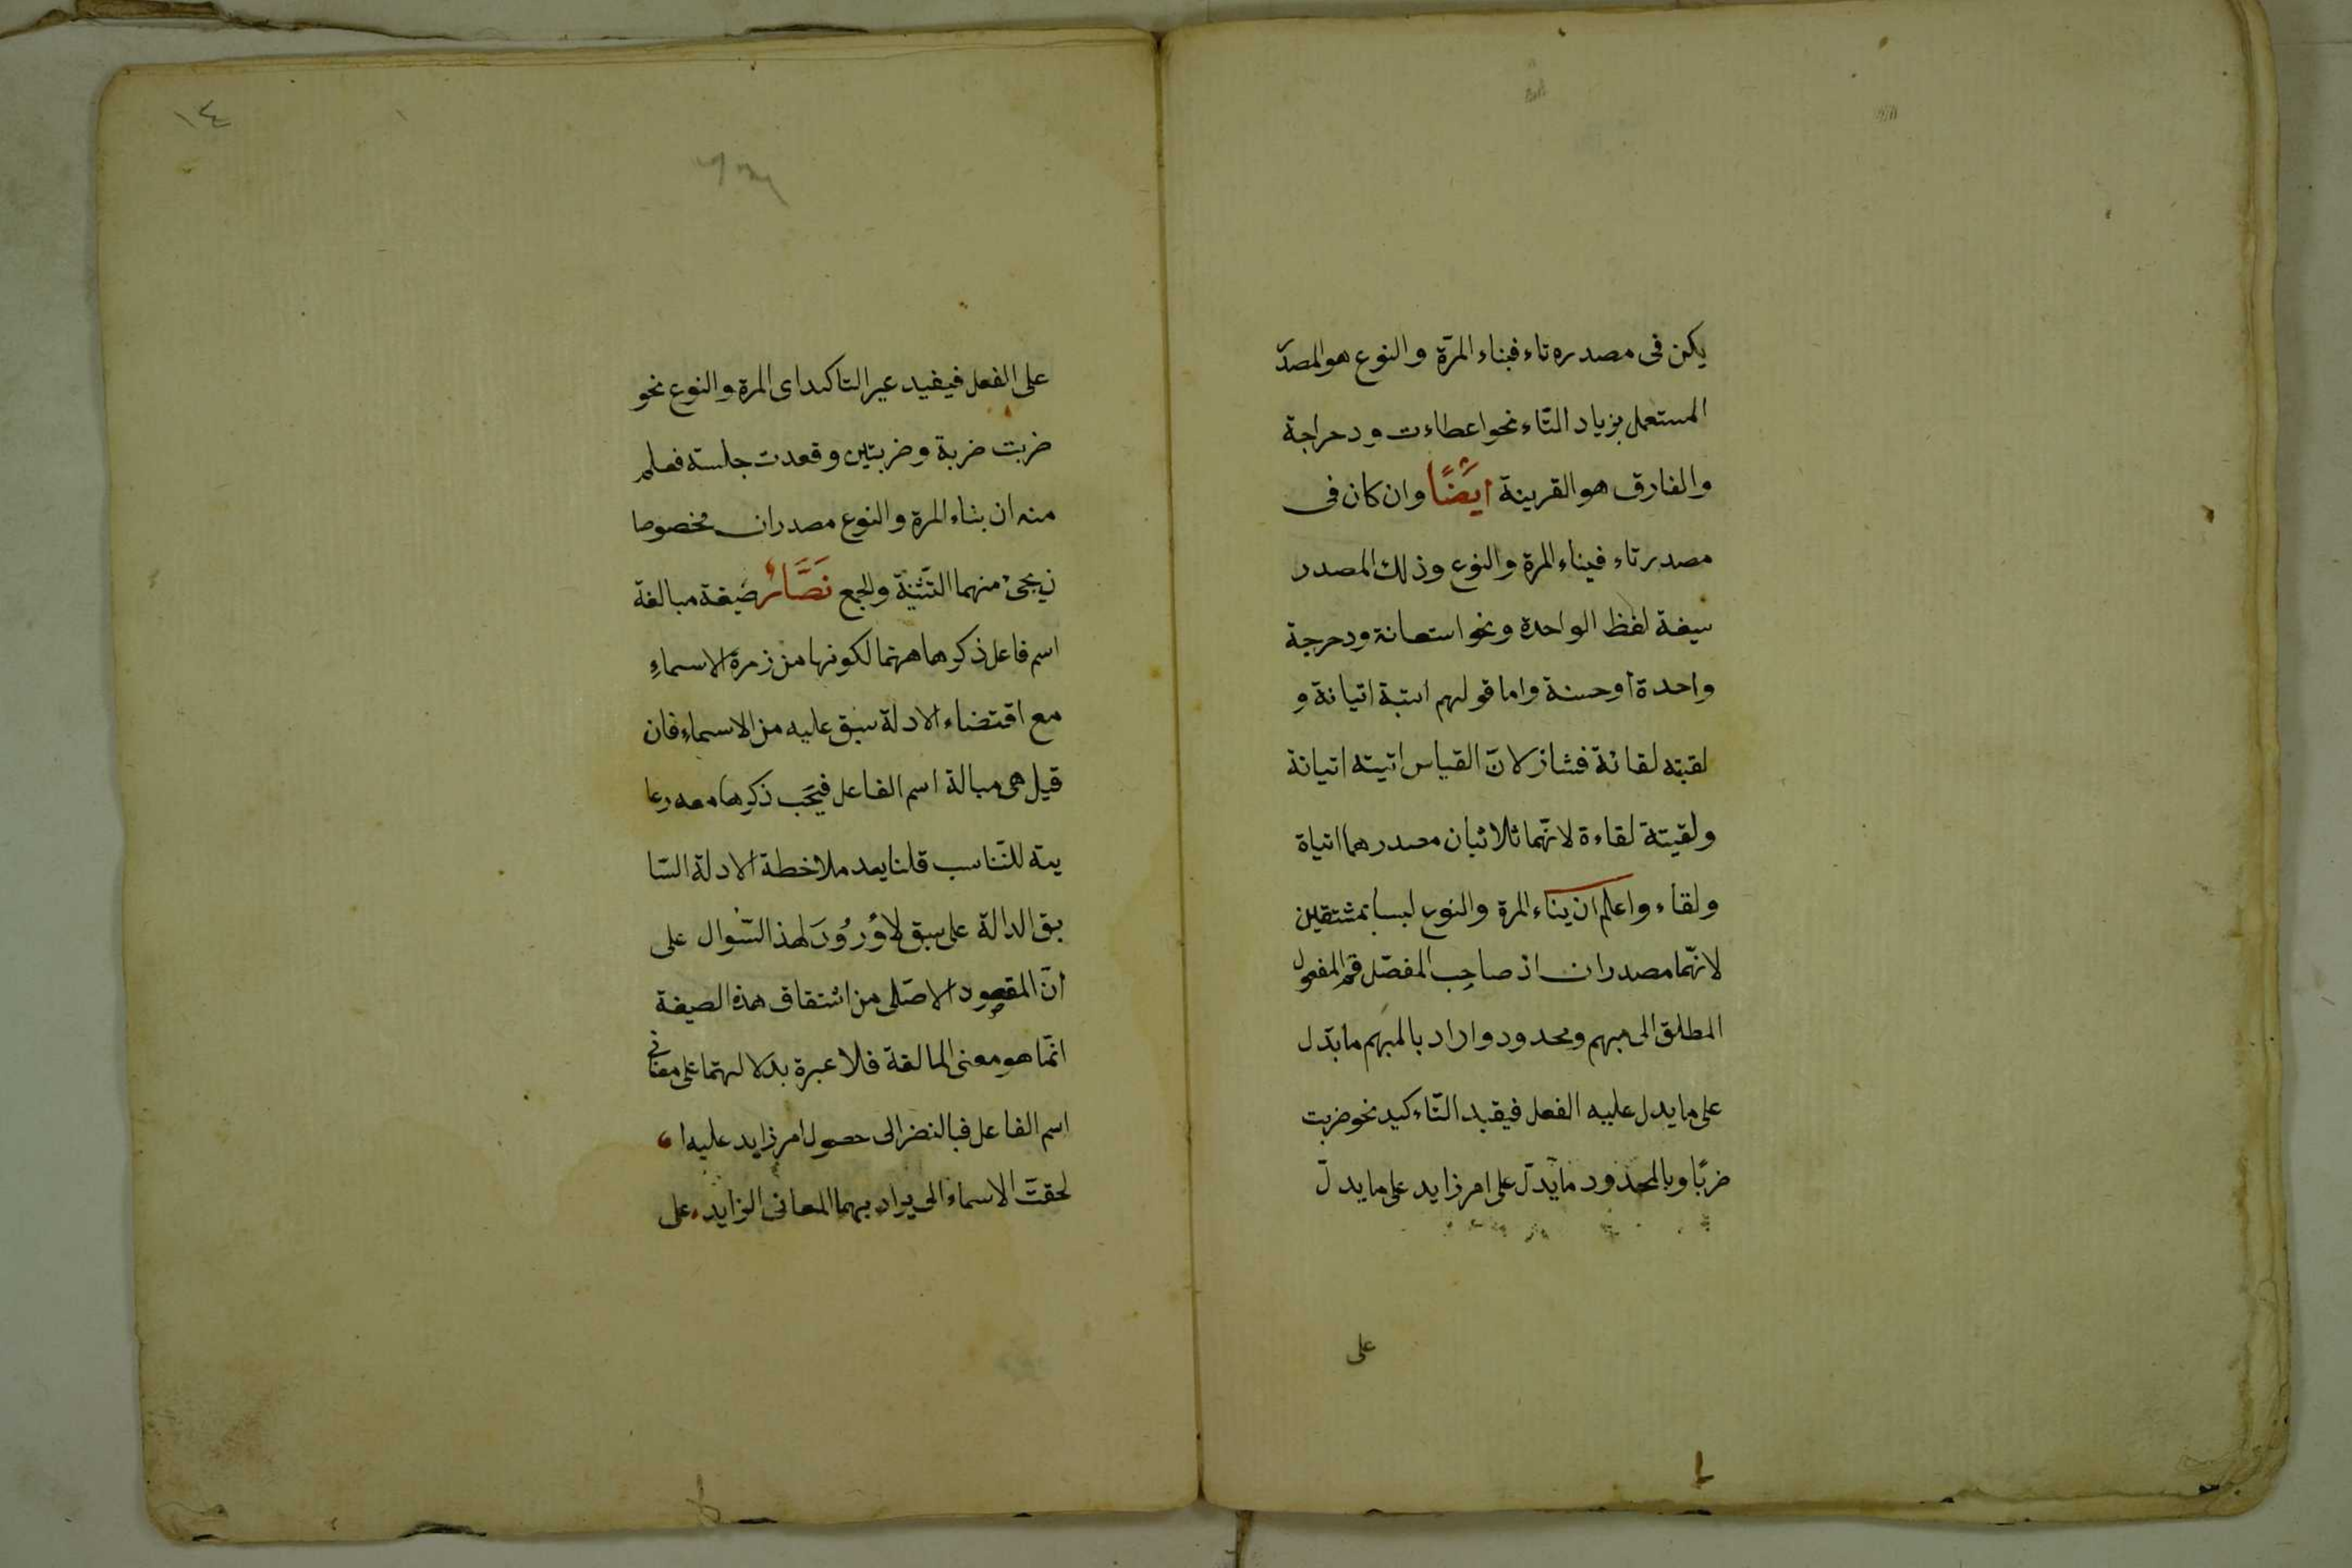 يكن فى مصدره تاء فبناء المرّة والنوع هو المصدر
المستعمل بزياد التّاء نحو اعطاءت ودحراجة
والفارق هو القرينة ايَضًا وان كان فى
مصدر تاء فبناء المرة والنوع وذلك المصدر
سيغة لفظ الواحدة ونحو استعانة ودحرجة
واحدة أوحسنة واما قولهم اتبة اتيانة و
لقبته لقائة فشاز لانّ القياس اتيته اتيانة
ولقيتة لقاءة لانّهما ثلاثيان مصدرهما اتياة
ولقاء واعلم ان بناء المرة والنوع ليسا بمشتقين
لانّهما مصدران اذ صاحب المفصّل قسم المفعول
المطلق الى مبهم ومحدود واراد بالمبهم ما بدّل
على ما يدل عليه الفعل فيقبد التّاءكيد نحو ضربت
ضربًا وبالمحدود ما يدّل على امر زايد على ما يدلّ
على
١٤
على الفعل فيفيد غير التاكيد اى المرة والنوع نحو
ضربت ضربة وضربتين وقعدت جلسته فعلم
منه ان بناء المرة والنوع مصدران مخصوصا
ن يجئ منهما التّثنيّة والجمع نَصَّارٌ صَيغة مبالغة
اسم فاعل ذكرها ههنا لكونها من زمرة الاسماءِ
مع اقتضاء الادلة سبق عليه من الاسماء فان
قيل هى مبالة اسم الفاعل فيجَب ذكرها معه رعا
يته للتّناسب قلنا بعد ملاخطة الادلة السّا
بق الدالة على سبق لا وُرُودَ لهذ السّوال على
انّ المقصود الاصَلى من اشتقاق هذه الصيغة
انمّا هو معنى المالغة فلا عبرة بدلالهتها على معنا فى
اسم الفاعل فبالنضر الى حصول امر زايد عليه ا
لحقتَ الاسماء الى يراد بهما المعانى الزايد على